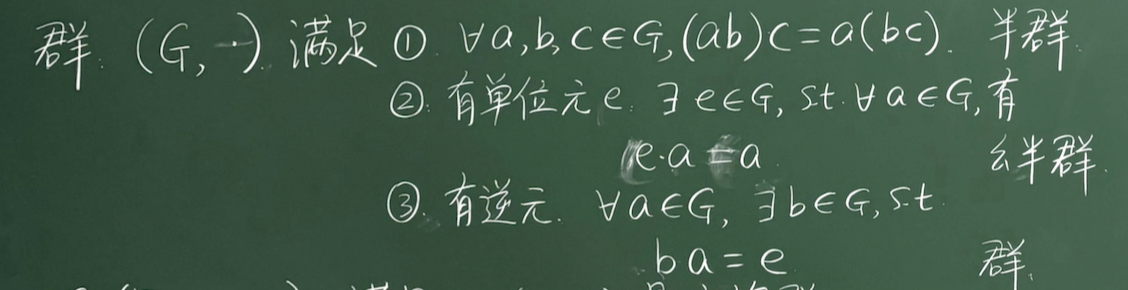 群. (G, ·). 满足 ①. ∀a,b,c∈G, (ab)c=a(bc). 半群.
②. 有单位元e. ∃e∈G, s.t. ∀a∈G, 有
e·a=a. 幺半群.
③. 有逆元. ∀a∈G, ∃b∈G, s.t.
ba=e. 群.